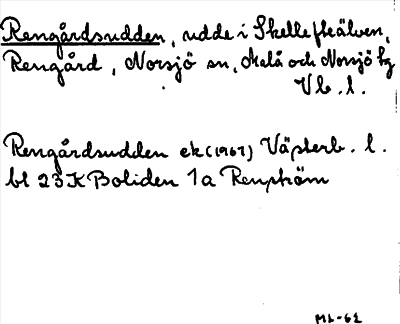 Rengårdsudden, udde i Skellefteälven,
Rengård, Norsjö sn, Malå och Norsjö tg
Vb. l.
Rengårdsudden ek (1967) Västerb. l.
bl 23K Boliden 1a Renström
ML-62